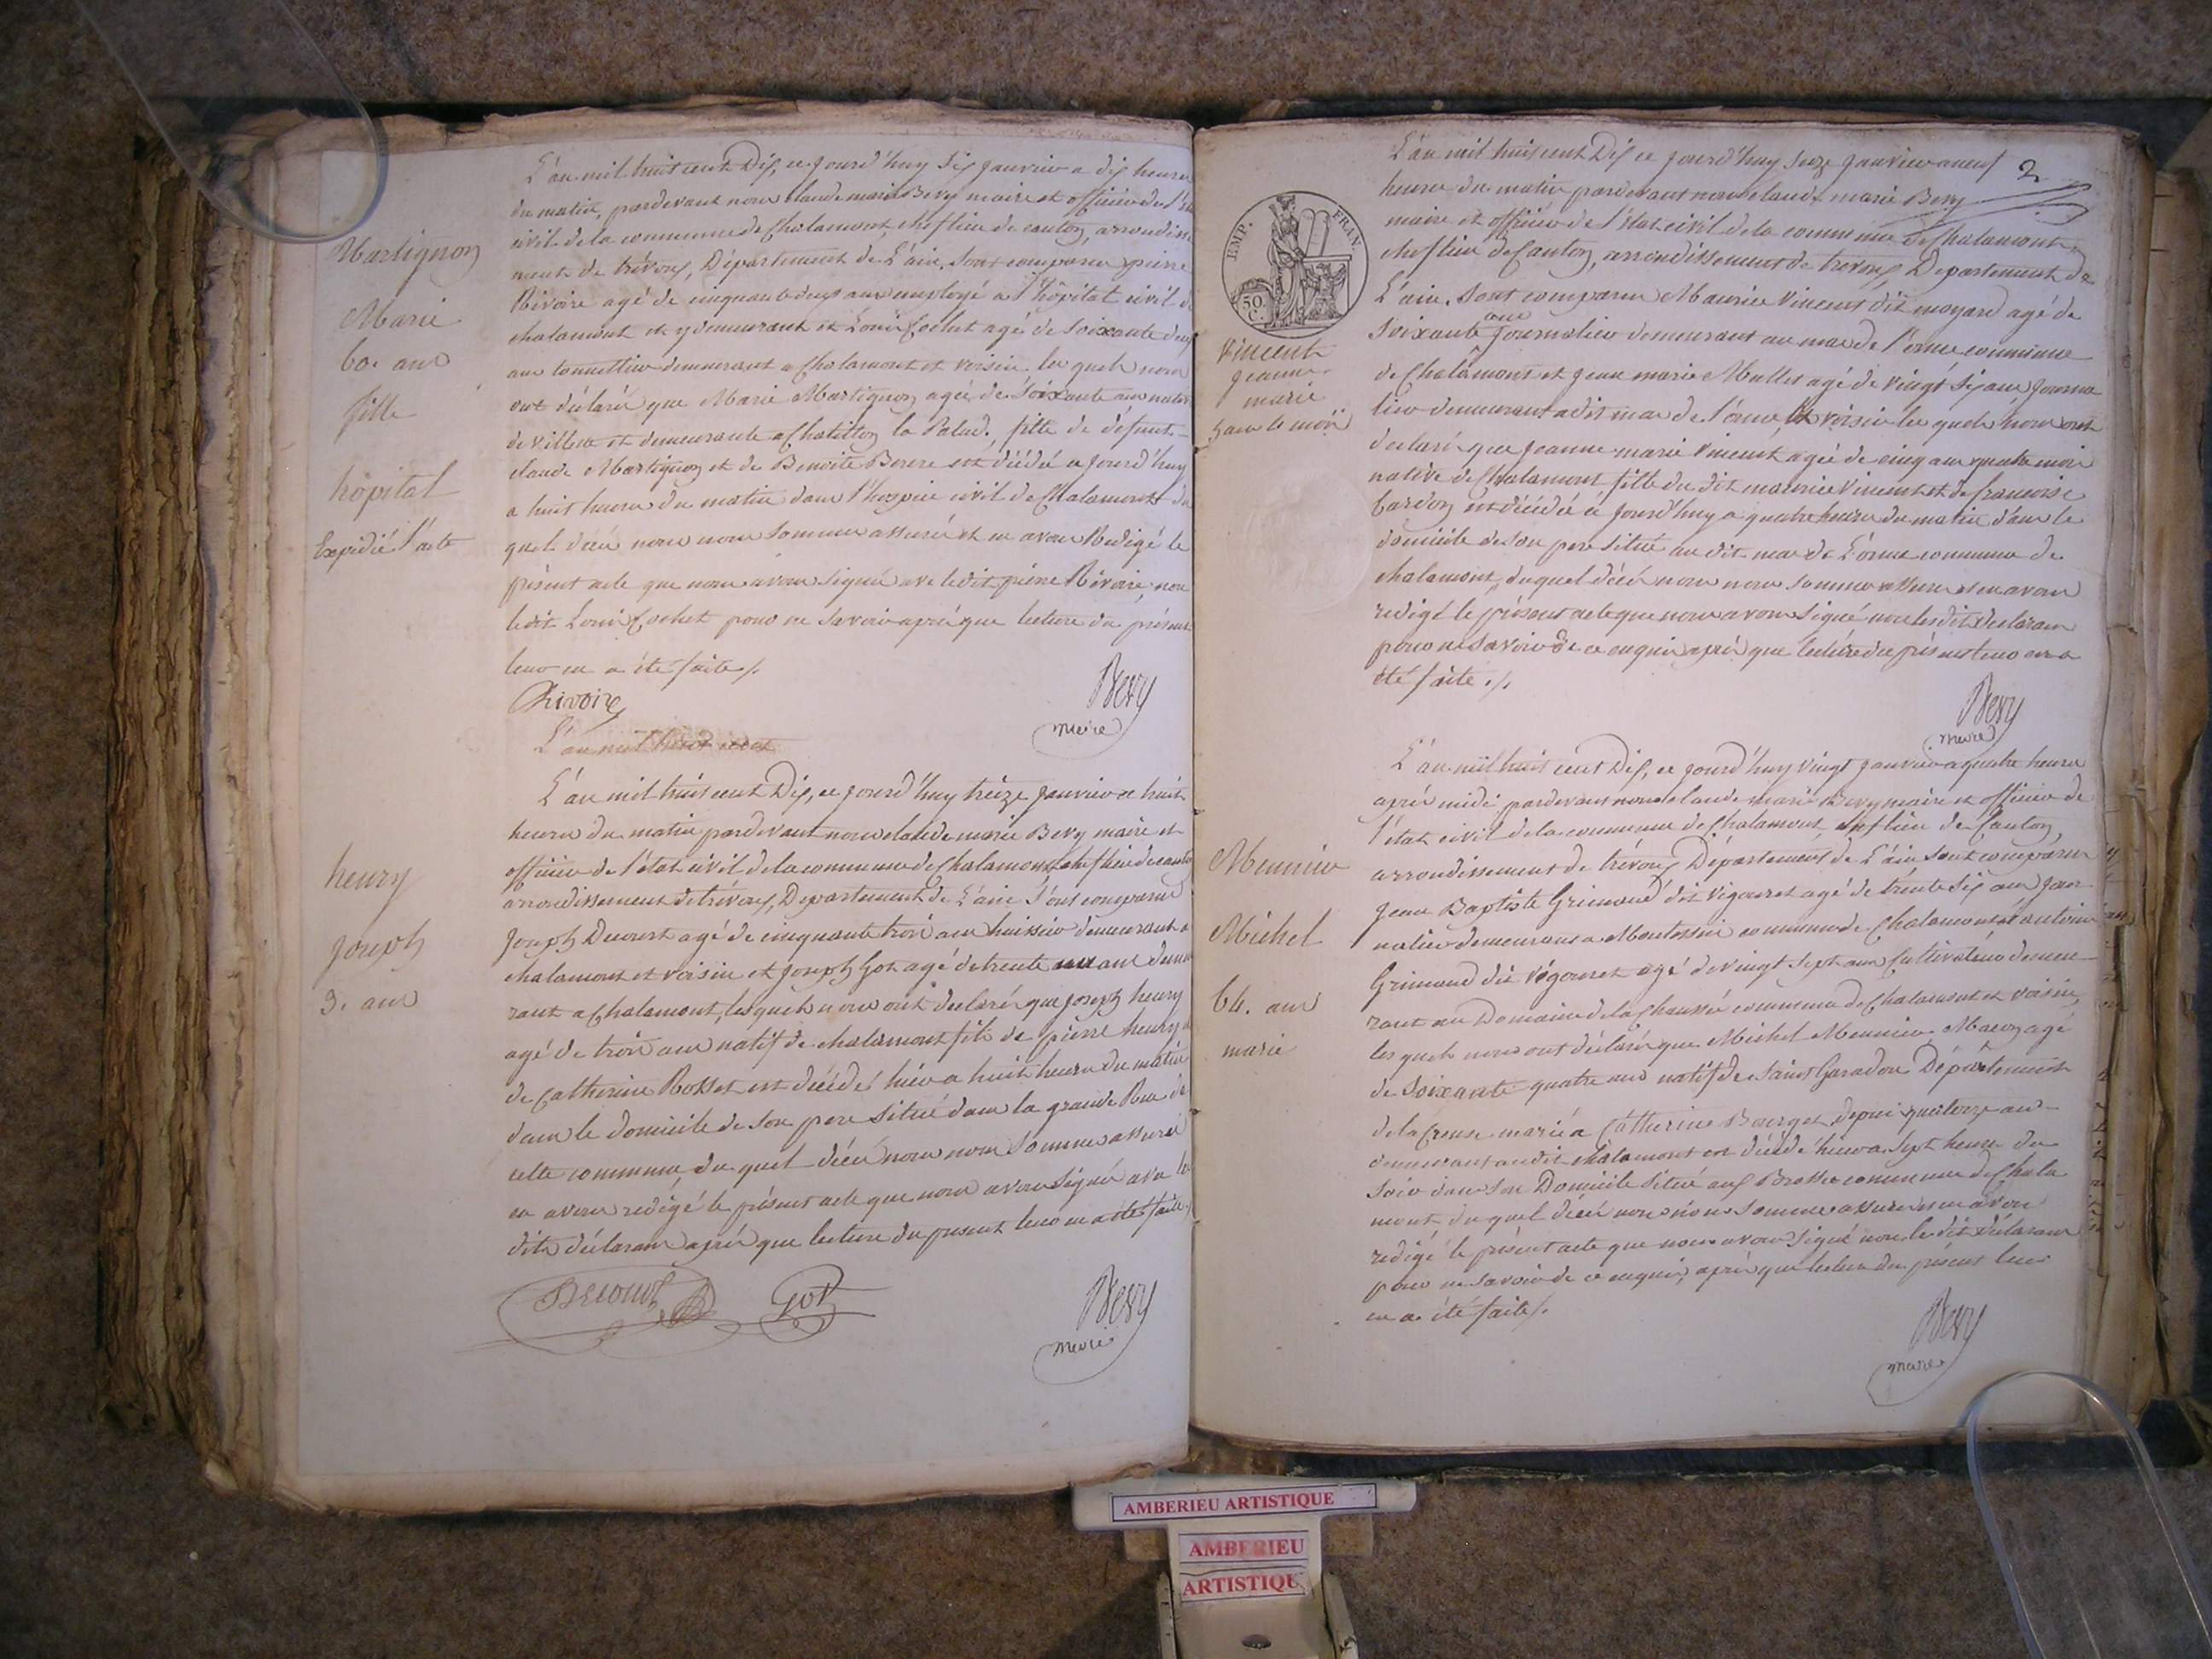 L'an mil huit cent Dix, ce jourd'huy Six janvier a dix heures
du matin, pardevant nous Claude marie Bevy maire et officier de l'état
civil de la commune de Chalamont, chef lieu de canton, arrondisse
ment de trévoux, Département de L'ain, sont comparu pierre
Rivoire agé de cinquante deux ans employé a l'hôpital civil de
chalamont et y demeurant et Louis Cochet agé de soixante deux
ans tonnellier demeurant a Chalamont et voisin. les quels nous
ont déclaré que Marie Martignon agée de soixante ans native
de villette et demeurante a Chatillon la Palud, fille de défunt
claude Martignon et de Benoite est décédée ce jourd'huy
a huit heures du matin dans l'hospice civil de Chalamont du
quel décès nous nous sommes assuré et en avons Redigé le
présent acte que nous avons signé avec le dit pierre Rivoire, non
le dit Louis Cochet pour ne savoir après que lecture du présent
leur en a été faite ./.
Rivoire
Bevy
maire
L'an mil huit cent
Martignon
Marie
60. ans
fille
hôpital
Expédié l'acte
L'an mil huit cent Dix, ce jourd'huy treize janvier a huit
heures du matin pardevant nous claude marie Bevy maire et
officier de l'état civil de la commune de Chalamont chef lieu de canton
arrondissement de trévoux, Departement de L'ain Sont comparu
Joseph Decourt agé de cinquante trois ans huissier demeurant a
chalamont et voisin et Joseph Got agé de trente ans demeu
rant a Chalamont, les quels nous ont declaré que Joseph henry
agé de trois ans natif de chalamont fils de pierre henry et
de Catherine Rosset est décédé hier a huit heures du matin
dans le domicile de son pere situé dans la grande Rue de
cette commune, du quel décès nous nous sommes assuré
en avons redigé le présent acte que nous avons signé avec les
dits déclarans après que lecture du present leur en a été faite ./.
Decourt
Got
Bevy
maire
henry
joseph
3. ans
2
L'an mil huit cent Dix ce jourd'huy seize janvier a neuf
heures du matin pardevant nous claude marie Bevy
maire et officier de l'état civil de la commune de Chalamont,
chef lieu de Canton, arrondissement de trevoux Departement de
L'ain. Sont comparu Maurice Vincent dit moyard agé de
soixante ans journalier demeurant au mas de l'orme commune
de Chalamont et jean marie Mullet agé de vingt six ans journa
lier demeurant a dit mas de l'orme et voisin les quels nous ont
declaré que jeanne marie Vincent agée de cinq ans quatre mois
native de Chalamont fille du dit maurice Vincent et de francoise
Cardon est décédée ce jourd'huy a quatre heures du matin dans le
domicile de son pere situé au dit mas de L'orme commune de
chalamont, du quel décès nous nous sommes assuré et en avons
redigé le présent acte que nous avons signé non les dits declarans
pour ne savoir de ce enquis après que lecture du présent leur en a
été faite ./.
Bevy
maire
EMP. FRAN.
50. C.
Vincent
jeanne
marie
5 ans 4 mois
L'an mil huit cent Dix, ce jourd'huy vingt janvier a quatre heures
après midi pardevant nous claude marie Bevy maire et officier de
l'état civil de la commune de Chalamont chef lieu de Canton,
arrondissement de trévoux Département de L'ain sont comparu
Jean Baptiste Grimaud dit Vigouret agé de trente six ans jour
nalier demeurant a commune de Chalamont et antoine
Grimaud dit Vigouret agé de vingt sept ans Cultivateur demeu
rant au Domaine de la Chaussée commune de Chalamont et voisin,
les quels nous ont déclaré que Michel Meunier Maçon agé
de soixante quatre ans natif de Saint Département
de la Creuse marié a Catherine Bourget depuis quatorze ans
demeurant au dit chalamont est décédé hier a sept heures du
soir dans son Domicile situé aux Brosses commune de Chala
mont du quel décès nous nous sommes assuré et en avons
redigé le présent acte que nous avons signé non les dits déclarans
pour ne savoir de ce enquis, après que lecture du présent leur
en a été faite ./.
Bevy
maire
Meunier
Michel
64. ans
marié
AMBERIEU ARTISTIQUE
AMBERIEU
ARTISTIQUE